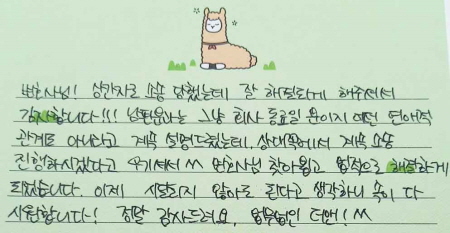 변호사님! 상간자로 소송 당했는데 잘 해결되게 해주셔서
감사합니다!!! 남편분과는 그냥 회사 동료일 뿐이지 어떤 연애적
관계도 아니라고 계속 설명드렸는데, 상대쪽에서 계속 소송
진행하시겠다고 우기셔서 ^^ 변호사님 찾아뵙고 법적으로 해결하게
되었습니다. 이제 시달리지 않아도 된다고 생각하니 속이 다
시원합니다! 정말 감사드려요, 법무법인 더앤! ^^